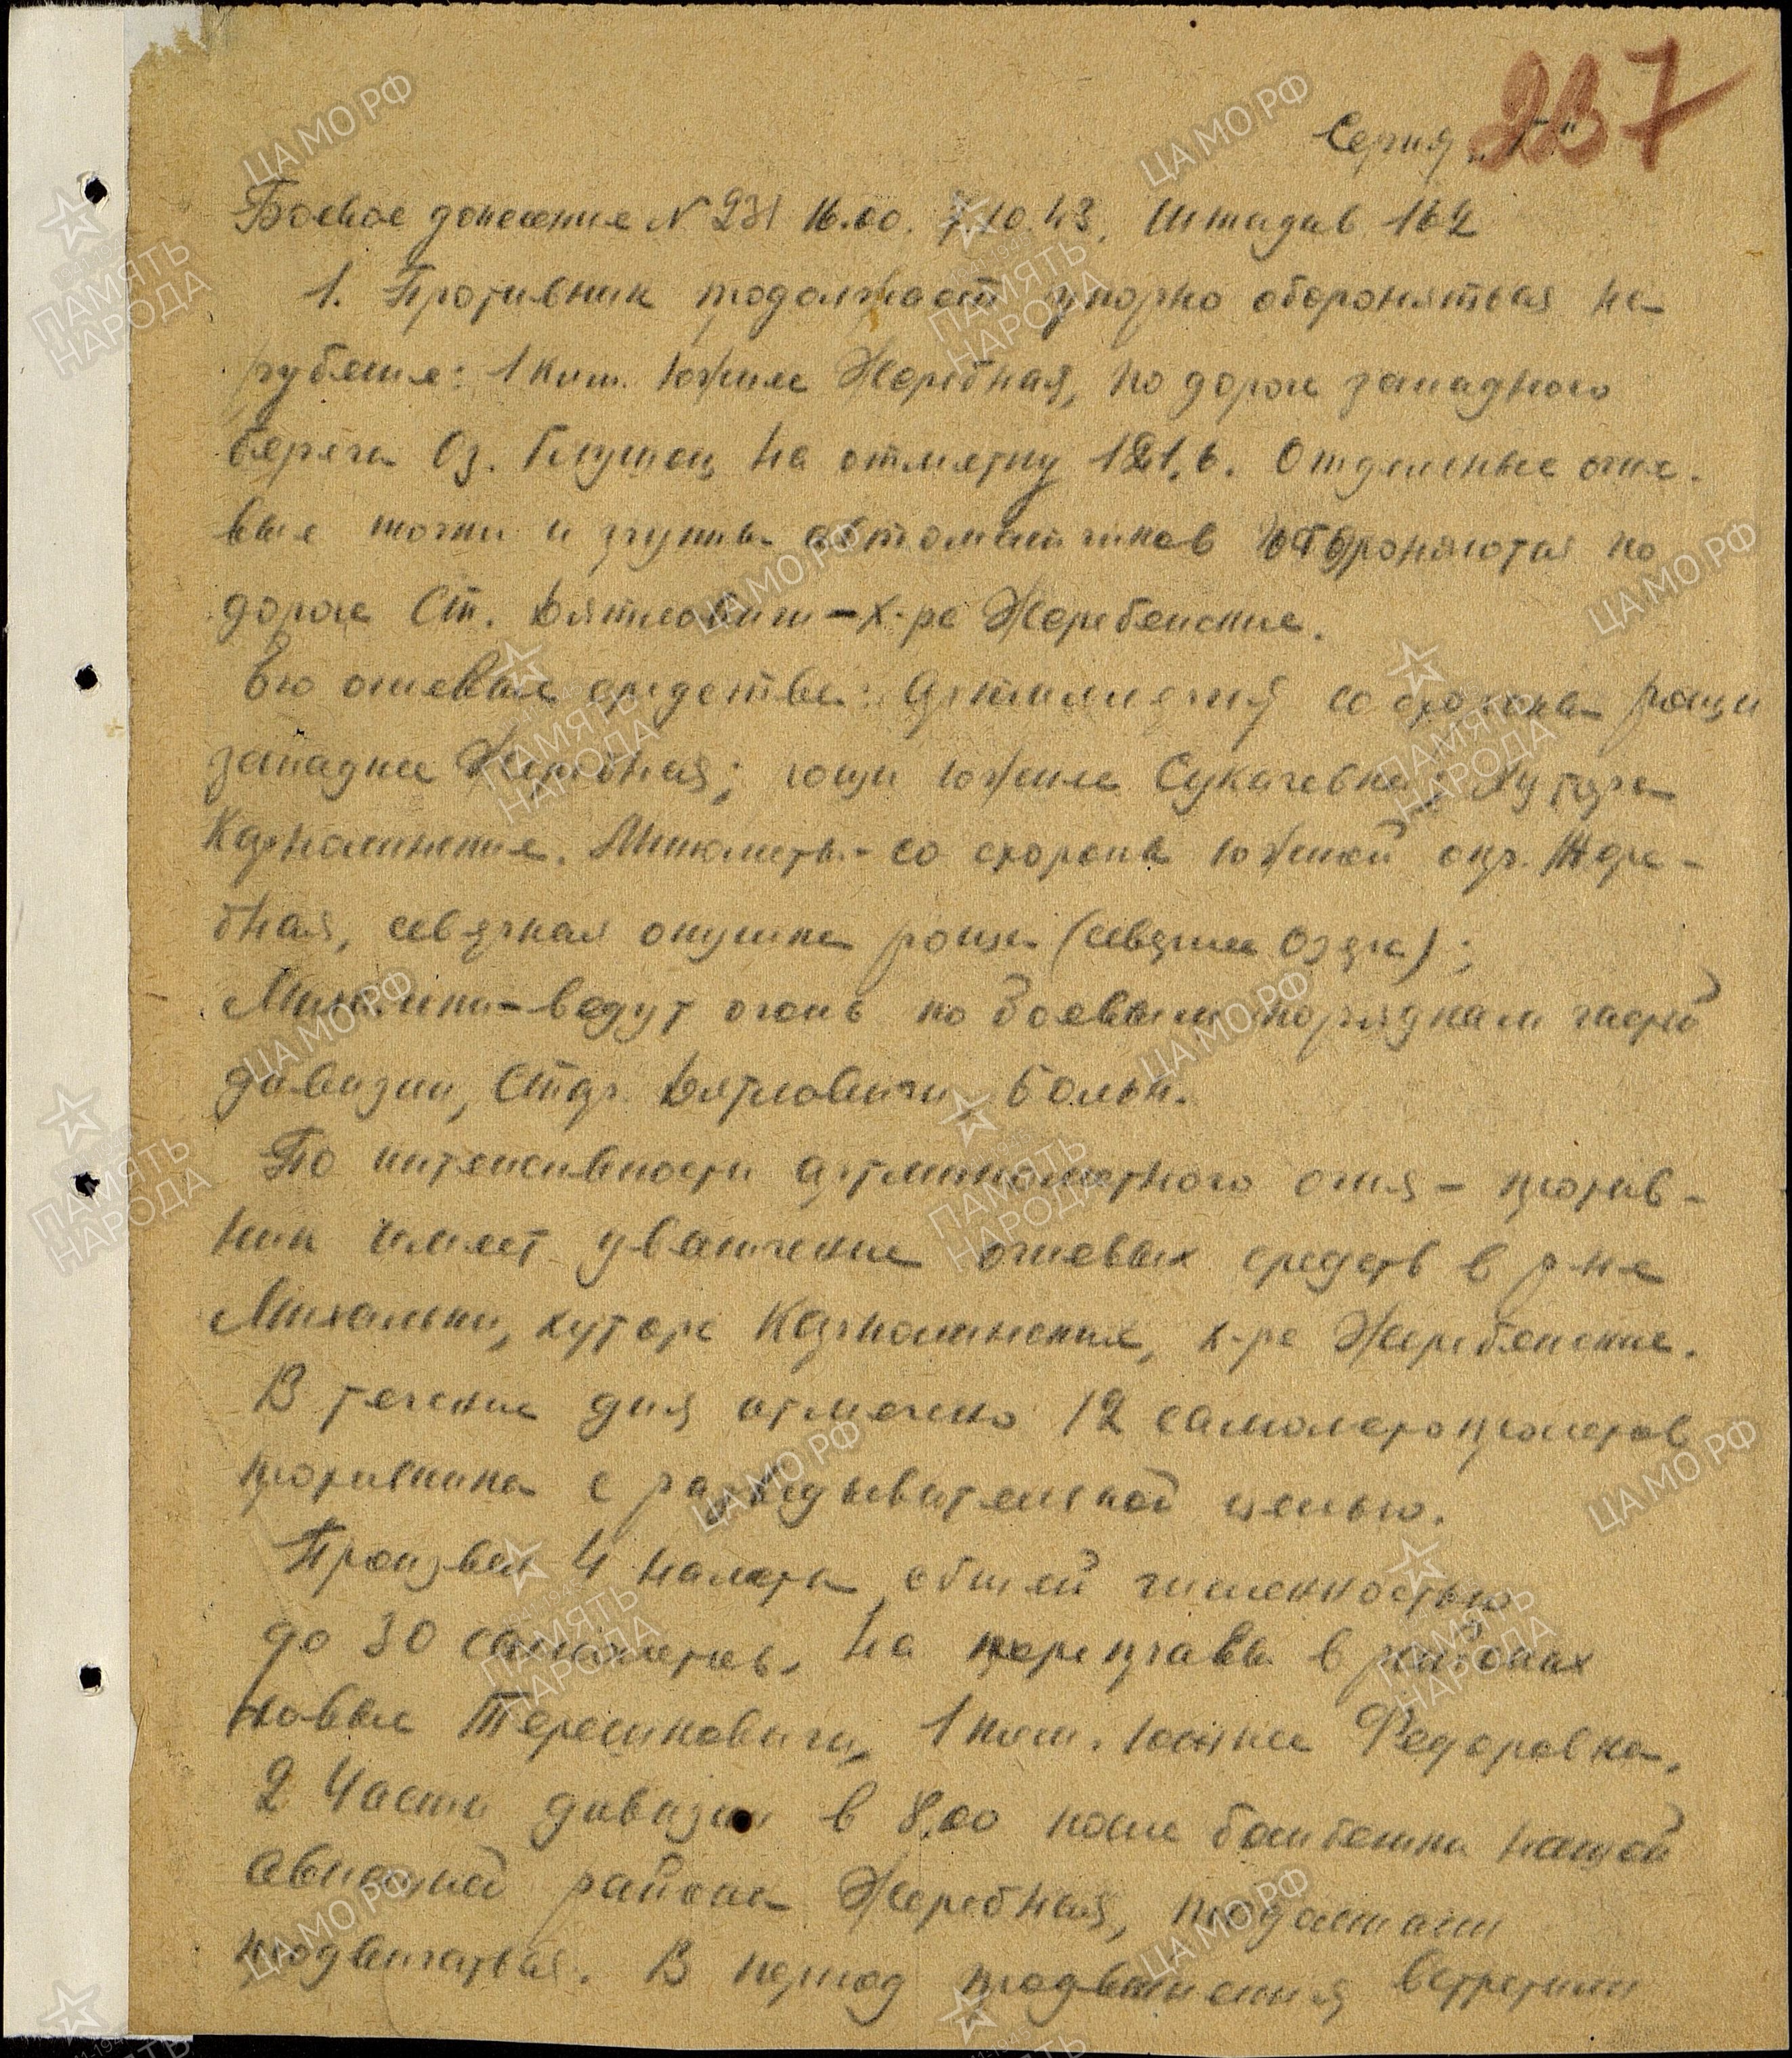 237
Серия "Г"
Боевое донесение № 231 16.00. 7.10.43. Штадив 162
1. Противник продолжает упорно обороняться на
рубеже: 1 клм. южнее Жеребная, по дороге западного
берега Оз. Глушец на отметку 121,6. Отдельные огне-
вые точки и группы автоматчиков обороняются по
дороге Ст. Дятловичи - х-ра Жеребянские.
Его огневые средства: Артиллерия со стороны рощи
западнее Жеребная; рощи южнее Сукачевка; Хутора
Карналинские. Минометы - со стороны южной окр. Жере-
бная, северная опушка рощи (севернее Озера);
ведут огонь по боевым порядкам частей
дивизии, Стар. Дятловичи,
По интенсивности артминометного огня - против-
ник имеет увеличение огневых средств в р-не
Михальки, хутора Карналинские, х-ра Жеребянские.
В течение дня отмечено 12 самолетопролетов
противника с разведывательной целью.
Произвел 4 налета общей численностью
до 30 самолетов. На переправы в районах
Новые Терешковичи, 1 клм. южнее Федоровка.
2 Части дивизии в 8.00 после бомбежки нашей
авиацией района Жеребная, продолжали
продвигаться. В период продвижения встретили
ЦА МО РФ
ПАМЯТЬ НАРОДА